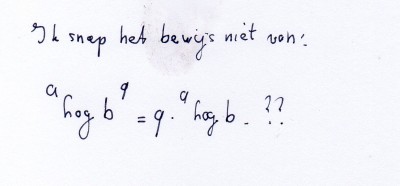 Ik snap het bewijs niet van:
ᵃlog b^q = q · ᵃlog b. ??